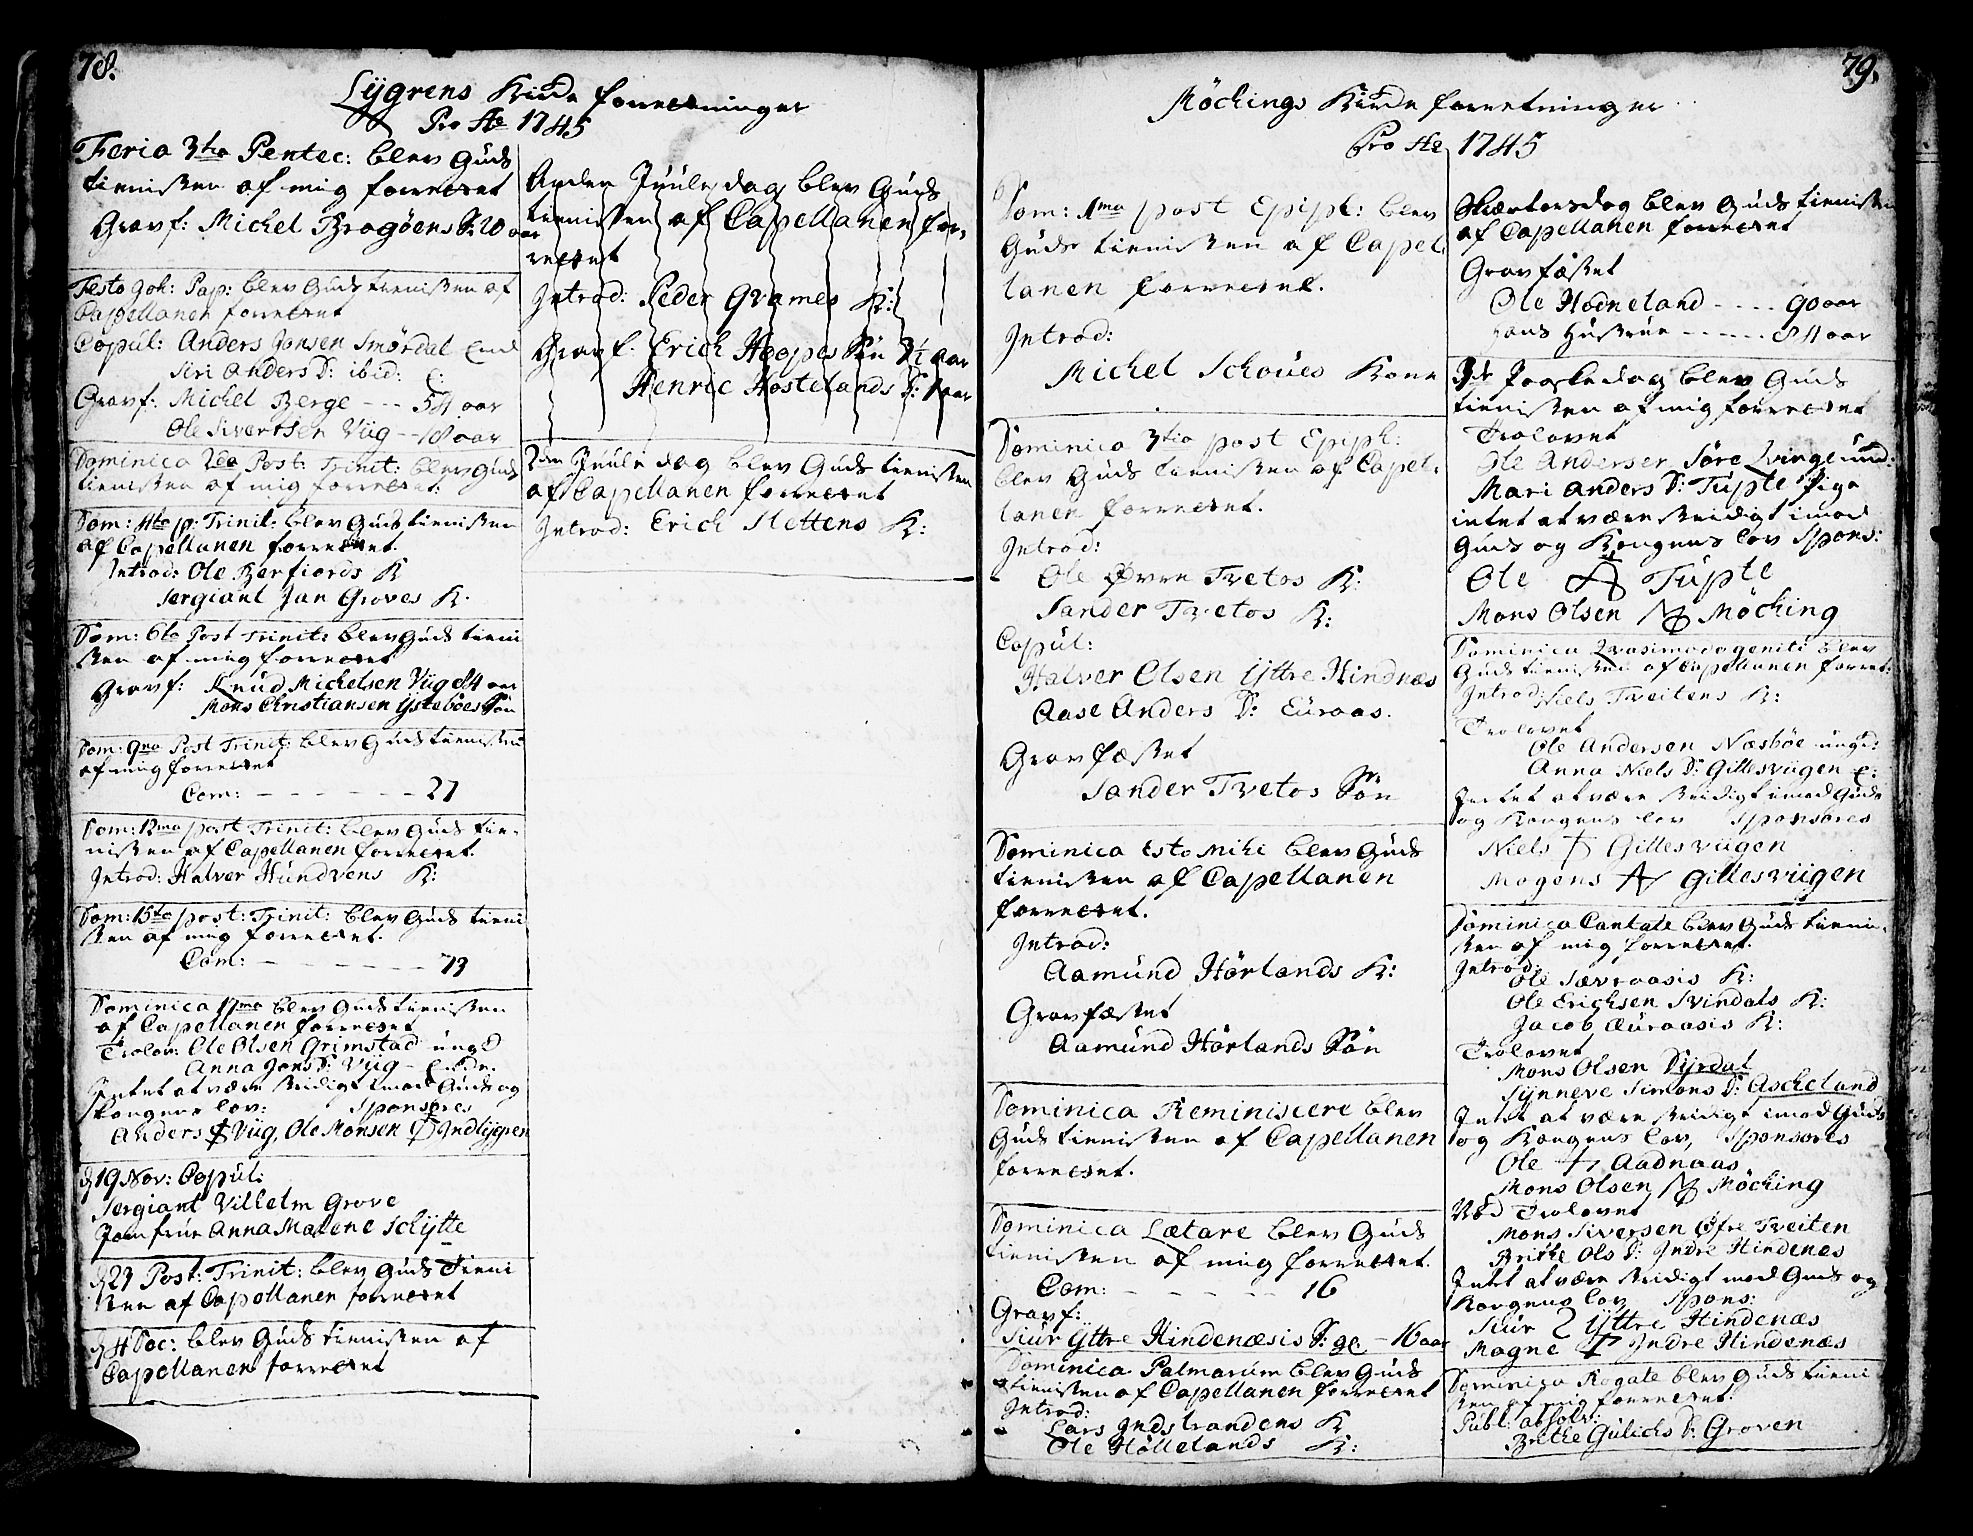 78.
Lÿgrens Kirche forretninger
Pro Ao 1745
Feria 3tia Pentec: blev Guds
tienisten af mig forrettet
Gravf: Michel Bragøens S. 20 aar
Festo Joh: Bap: blev Guds tienisten af
Capellanen forrettet
Copul: Anders Jansen Smørdal Enel
Siri Anders D: ibid: E:
Gravf: Michel Berge --- 54 aar
Ole Sivertsen Viig -- 18 aar
Dominica 2da Post: Trinit: blev Guds
tienisten af mig forrettet.
Dom: 4ta p: Trinit: blev Guds tienisten
af Capellanen forrettet.
Introd: Ole Berfiords K
Sergiant Jan Groves K.
Dom: 6ta Post Trinit: blev Guds tieni
sten af mig forrettet
Gravf: Knud Michelsen Viig 84 aar
Mons Christiansen Ÿstebøes Søn
Dom: 9na Post Trinit: blev Guds tienisten
af mig forrettet
Com: - - - - - - - 27
Dom: 12ma post Trinit: blev Guds tie-
nisten af Capellanen forrettet.
Introd: Halver Hundvens K:
Dom: 15ta post: Trinit: blev Guds tieni
sten af mig forrettet.
Com: - - - - - - - 79
Dominica 17ma blev Guds tienisten
af Capellanen forrettet
Trolov: Ole Olsen Grimstad ungd
Anna Jans D: Viig - Enke.
Intet at være stridigt imod Guds og
Kongens lov: Sponsores
Anders Viig, Ole Monsen Indlÿgen
d 19 Nov: Copul:
Sergiant Villelm Grove
Jomfrue Anna Malene Schÿtte
d 23 Post: Trinit: blev Guds Tieni
sten af Capellanen forrettet
d 4 Dec: blev Guds tienisten af
Capellanen forrettet
Anden Juule dag blev Guds
tienisten af Capellanen for-
rettet
Introd: Peder Qvames K:
Gravf. Erich Hopes Søn 3½ aar
Henric Hostelands D: 1 aar
2den Juule dag blev Guds tienisten
af Capellanen forrettet
Introd: Erich Slettens K:
79.
Møchings Kirche forretninger
Pro Ao 1745
Dom: 1ma post Epiph: blev
Guds tienisten af Capel-
lanen forrettet.
Introd:
Michel Schoues Kone
Dominica 3tia post Epiph:
blev Guds tienisten af Capel-
lanen forrettet.
Introd:
Ole Øvre Tvetos K:
Sander Tvetos K:
Copul:
Halver Olsen Ÿttre Hindnæs
Aase Anders D: Euraas.
Gravfæstet
Sander Tvetos Søn
Dominica Esto Mihi blev Guds
tienisten af Capellanen
forrettet.
Introd:
Aamund Hørlands K:
Gravfæstet
Aamund Hørlands Søn
Dominica Reminiscere blev
Guds tienisten af Capellanen
forrettet.
Dominica Lætare blev Guds
tienisten af mig forrettet.
Com: - - - - - 16
Gravf:
Siur Ÿttre Hindenæsis D: - 16 aar
Dominica Palmarum blev Guds
tienisten af Capellanen forrettet
Introd:
Lars Indstrandens K
Ole Hollelands K:
Skiærtorsdag blev Guds tienisten
af Capellanen forrettet
Gravfæstet
Ole Hodneland ---- 90 aar
hans Hustrue ----- 84 aar
3de Paaskedag blev Guds
tienisten af mig forrettet
Trolovet
Ole Andersen Søre Qvinge und:
Mari Anders D: Tupte Pige
intet at være stridigt imod
Guds og Kongens lov Spons:
Ole Tupte
Mons Olsen Møching
Dominica Qvasimodogeniti blev
Guds tienisten af Capellanen forret:
Introd: Niels Tveitens K:
Trolovet
Ole Andersen Næsbøe ungd:
Anna Niels D: Gillesviigen E:
Intet at være stridigt imod Guds
og Kongens lov Sponsores
Niels Gillesviigen
Mogens Gillesviigen
Dominica Cantate blev Guds tieni-
sten af mig forrettet.
Introd:
Ole Sævraasis K:
Ole Erichsen Svindals K:
Jacob Euraasis K:
Trolovet
Mons Olsen Dÿrdal
Sÿnneve Simons D: Ascheland
Intet at være stridigt imod Guds
og Kongens lov, Sponsores
Ole Aadnaas
Mons Olsen Møching
Trolovet
Mons Siversen Øfre Tveiten
Britte Ols D: Indre Hindenes
Intet at være stridigt mod Guds og
Kongens lov Spons:
Siur Ÿttre Hindenæs
Magne Indre Hindenæs
Dominica Rogate blev Guds tieni
sten af mig forrettet.
Publ: absolv:
Brithe Gulichs D: Groven